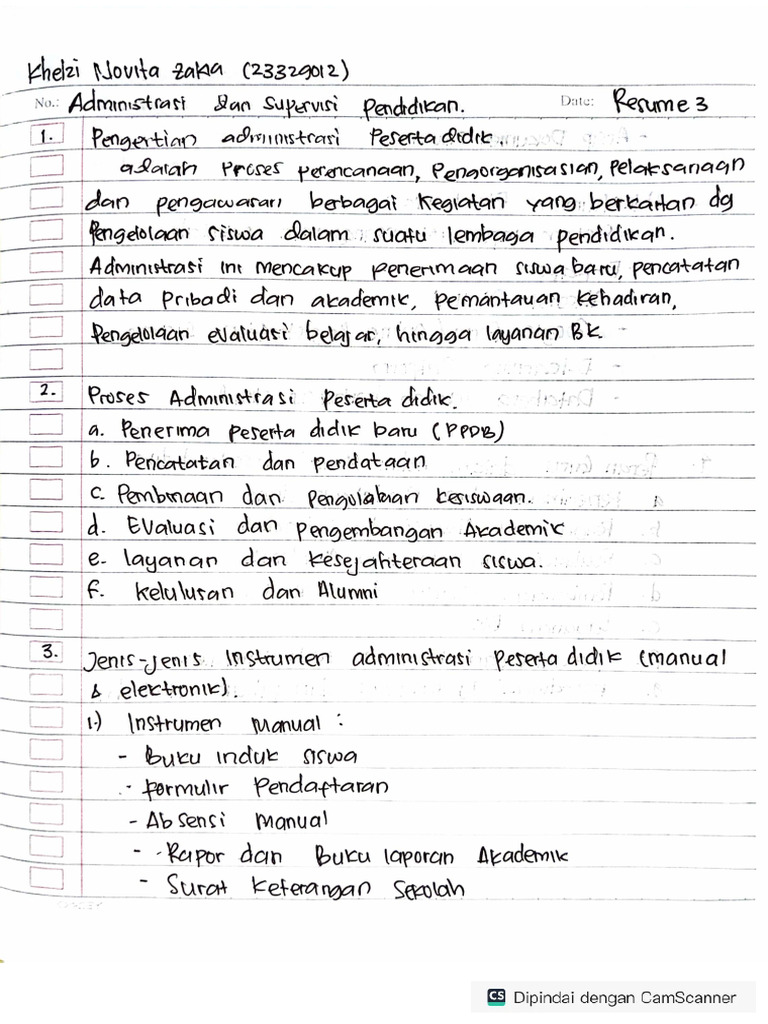 Khelzi Novita Zakia (23329012)
No.: Administrasi dan Supervisi Pendidikan. Date: Resume 3
1. Pengertian administrasi Peserta didik
adalah proses perencanaan, Pengorganisasian, Pelaksanaan
dan pengawasan berbagai kegiatan yang berkaitan dg
Pengelolaan siswa dalam suatu lembaga pendidikan.
Administrasi ini mencakup penerimaan siswa baru, pencatatan
data pribadi dan akademik, pemantauan kehadiran,
Pengelolaan evaluasi belajar, hingga layanan BK.
2. Proses Administrasi Peserta didik.
a. Penerima peserta didik baru (PPDB)
b. Pencatatan dan pendataan
c. Pembinaan dan kesiswaan.
d. Evaluasi dan pengembangan Akademik
e. layanan dan kesejahteraan siswa.
f. kelulusan dan Alumni
3. Jenis-jenis Instrumen administrasi Peserta didik (manual
& elektronik).
1.) Instrumen Manual :
- Buku induk siswa
- formulir Pendaftaran
- Absensi Manual
- Rapor dan Buku laporan Akademik
- Surat keterangan Sekolah
CS Dipindai dengan CamScanner